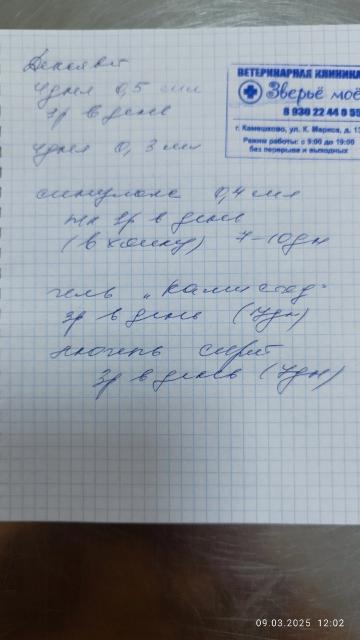 4 дня 0,5 мл
2р в день
4 дня 0,3 мл
синулокс 0,4 мл
1р в день
(в холку) 7-10 дн
гель „Камистад"
3р в день (7дн)
3р в день (7дн)
ВЕТЕРИНАРНАЯ КЛИНИКА
Зверьё моё
8 930 22 44 0 55
г. Камешково, ул. К. Маркса, д. 1
Режим работы: с 9:00 до 19:00
без перерыва и выходных
09.03.2025 12:02